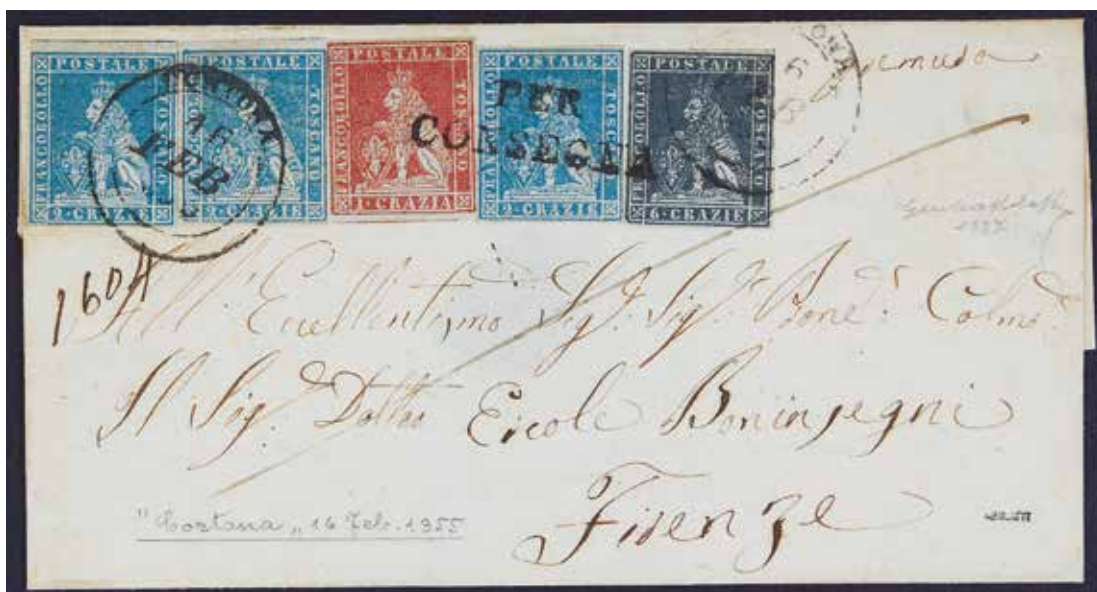 FRANCOBOLLO POSTALE TOSCANO 2·CRAZIE
FRANCOBOLLO POSTALE TOSCANO 2·CRAZIE
FRANCOBOLLO POSTALE TOSCANO 1·CRAZIA
FRANCOBOLLO POSTALE TOSCANO 2·CRAZIE
FRANCOBOLLO POSTALE TOSCANO 6·CRAZIE
CORTONA
16
FEB
PER
CONSEGNA
All' Eccellentissmo Sigr. Sigr. Prone. Colmo.
Il Sigr. Dottor Ercole Boninsegni
Firenze
"Cortona„ 16 Feb. 1855